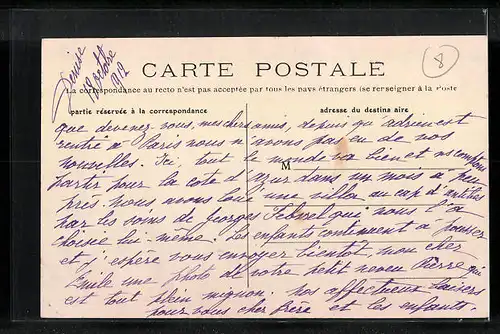 Denise
18 octobre
1912
8
CARTE POSTALE
La correspondance au recto n'est pas acceptée par tous les pays étrangers (se renseigner à la Poste
partie réservée à la correspondance
adresse du destinataire
M
que devenez vous, mes chers amis, depuis qu'adrien est
rentré à Paris nous n'avons pas eu de vos
nouvelles. Ici, tout le monde va bien et ns comptons
partir pour la cote d'azur dans un mois à peu
près. nous avons loué une villa au cap d'antibes
par les soins de Georges Lebrel qui nous l'a
choisie lui-même. les enfants continuent à pousser
et j'espère vous envoyer bientôt, mon cher
Emile une photo de votre petit neveu Pierre qui
est tout plein mignon. nos affectueux baisers
pour vous cher frère et les enfants.